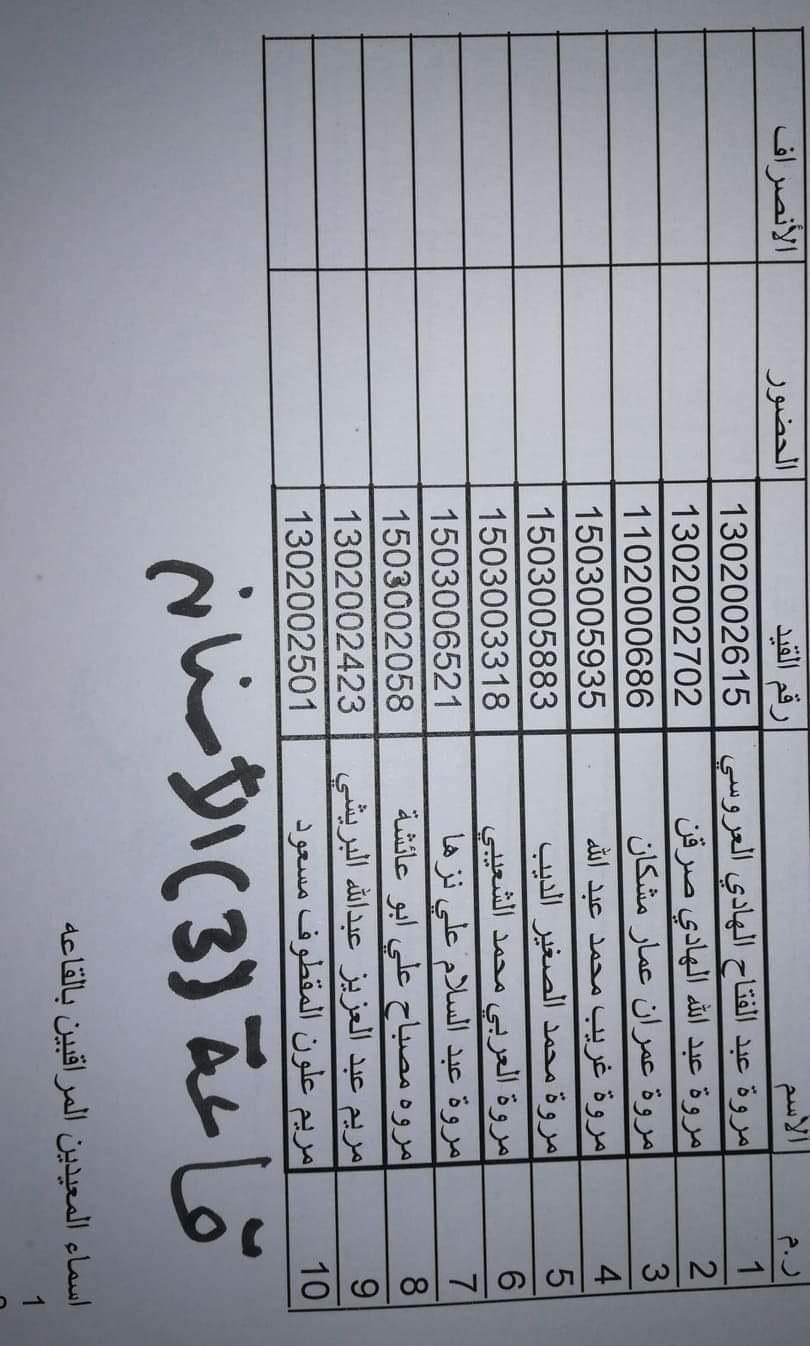 ر.م الاسم رقم القيد الحضور الأنصراف
1 مروة عبد الفتاح الهادي العروسي 1302002615
2 مروة عبد الله الهادي صرقن 1302002702
3 مروة عمران عمار مشكان 1102000686
4 مروة غريب محمد عبد الله 1503005935
5 مروة محمد الصغير الديب 1503005883
6 مروة العربي محمد الشعيبي 1503003318
7 مروة عبد السلام علي نزها 1503006521
8 مروه مصباح علي ابو عائشة 1503002058
9 مريم عبد العزيز عبدالله البريشي 1302002423
10 مريم علون المقطوف مسعود 1302002501
قاعة (3) الأسنان
اسماء المعيدين المراقبين بالقاعه
1